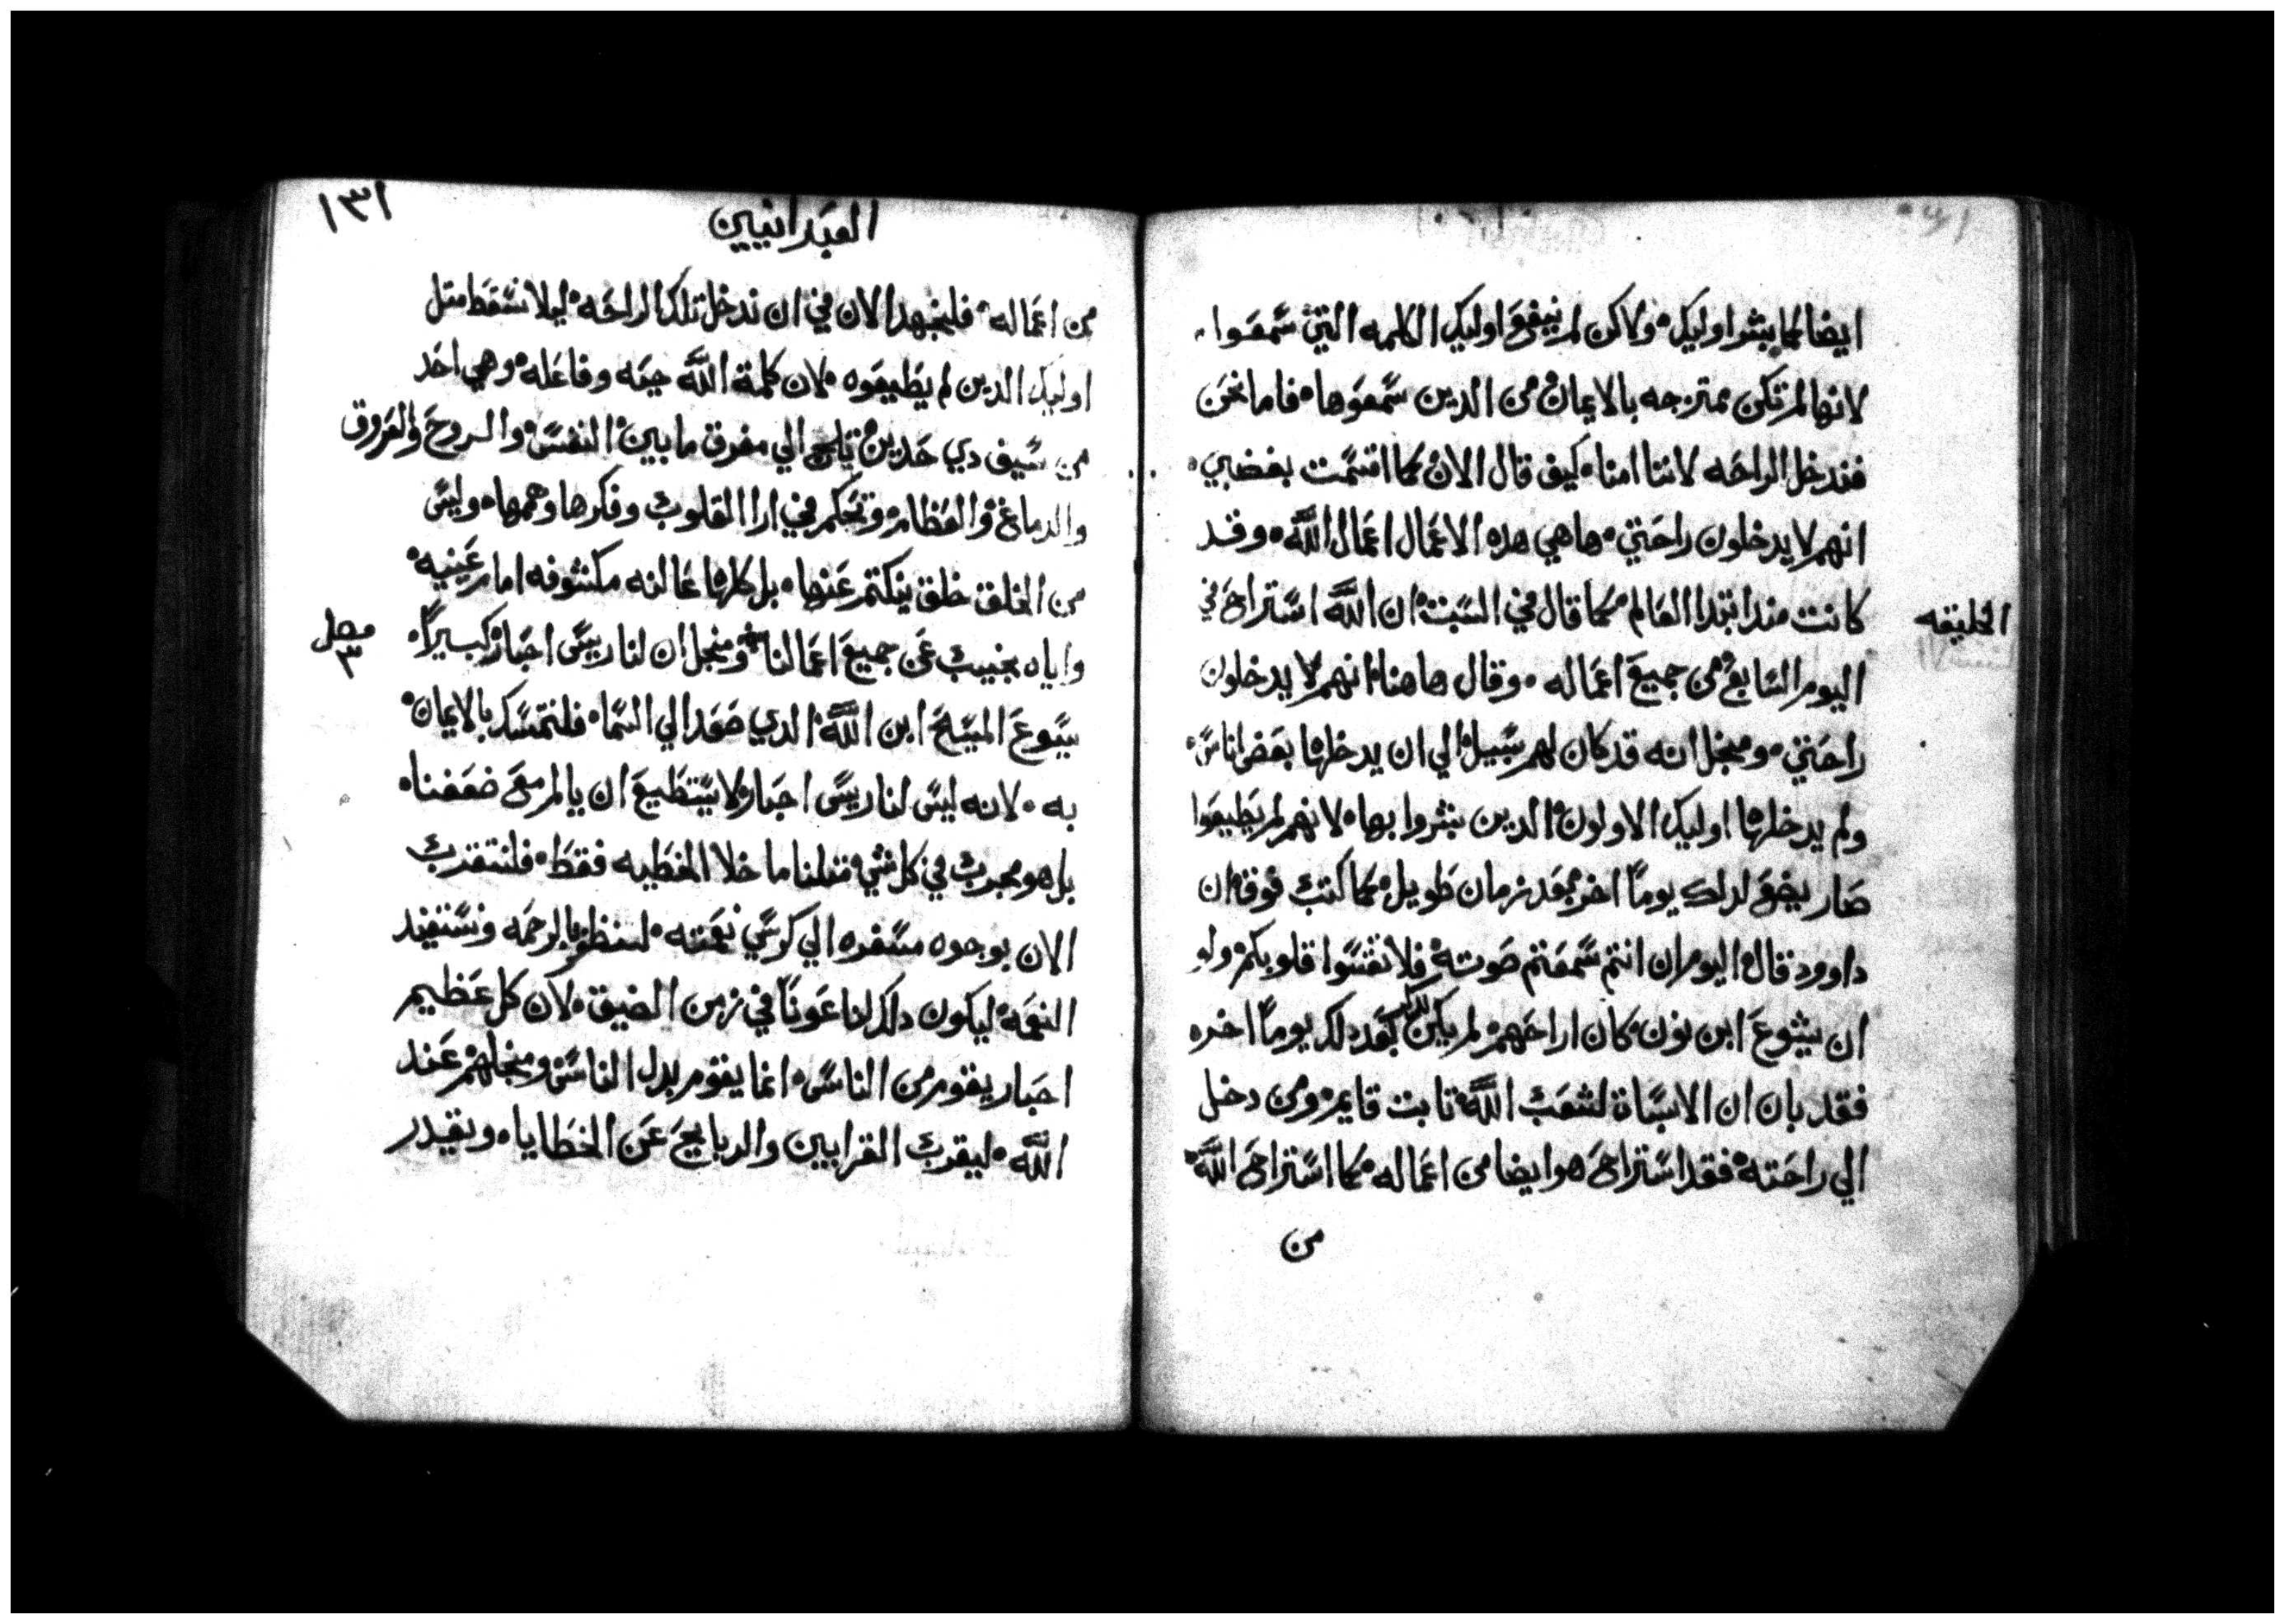 ايضا كما بشروا اوليك ولاكن لم ينفع اوليك الكلمه التي سمعوا
لانها لم تكن ممتزجه بالايمان من الدين سمعوها فاما نحن
فندخل الراحه لاننا امنا كيف قال الان كما اقسمت بغضبي
انهم لا يدخلون راحتي ها هي هده الاعمال اعمال الله وقد
كانت مند ابتدا العالم كما قال في السبت ان الله استراح في
الخليقه
اليوم السابع من جميع اعماله وقال هاهنا انهم لا يدخلون
راحتي ومنجل انه قد كان لهم سبيل الي ان يدخلها بعض اناس
ولم يدخلها اوليك الاولون الدين بشروا بها لانهم لم يطيعوا
صار يضع لداك يوماً اخر بعد زمان طويل كما كتب فوق ان
داوود قال اليوم ان انتم سمعتم صوته فلا تقسوا قلوبكم ولو
ان يشوع ابن نون كان اراحهم لم يكن يدكر بعد دلك يوماً اخر
فقد بان ان الاسباة لشعب الله تابت قايم ومن دخل
الي راحته فقد استراح هو ايضا من اعماله كما استراح الله
من
١٣١
العبرانيين
من اعماله فلنجهد الان في ان ندخل تلك الراحه ليلا نسقط متل
اوليك الدين لم يطيعوه لان كلمة الله حيه وفاعله وهي احد
من سيف دي حدين تلج الي مفرق ما بين النفس والروح والعروق
والدماغ والعظام وتحكم في ارا القلوب وفكرها وهمها وليس
من الخلق خلق ينكتم عنها بل كلها عالنه مكشوفه امام عينيه
واياه نجيب عن جميع اعمالنا ومنجل ان لنا ريس احبار كبيراً
فصل ٣
يسوع المسيح ابن الله الدي صعد الي السما فلنتمسك بالايمان
به لانه ليس لنا ريس احبار لا يستطيع ان يالم مع ضعفنا
بل هو مجرب في كل شي متلنا ما خلا الخطيه فقط فلنتقرب
الان بوجوه مسفره الي كرسي نعمته لنظفر بالرحمه ونستفيد
النعمه ليكون دلك لنا عوناً في زمن الضيق لان كل عظيم
احبار يقوم من الناس انما يقوم بدل الناس ومنجلهم عند
الله ليقرب القرابين والدبايح عن الخطايا ويقدر